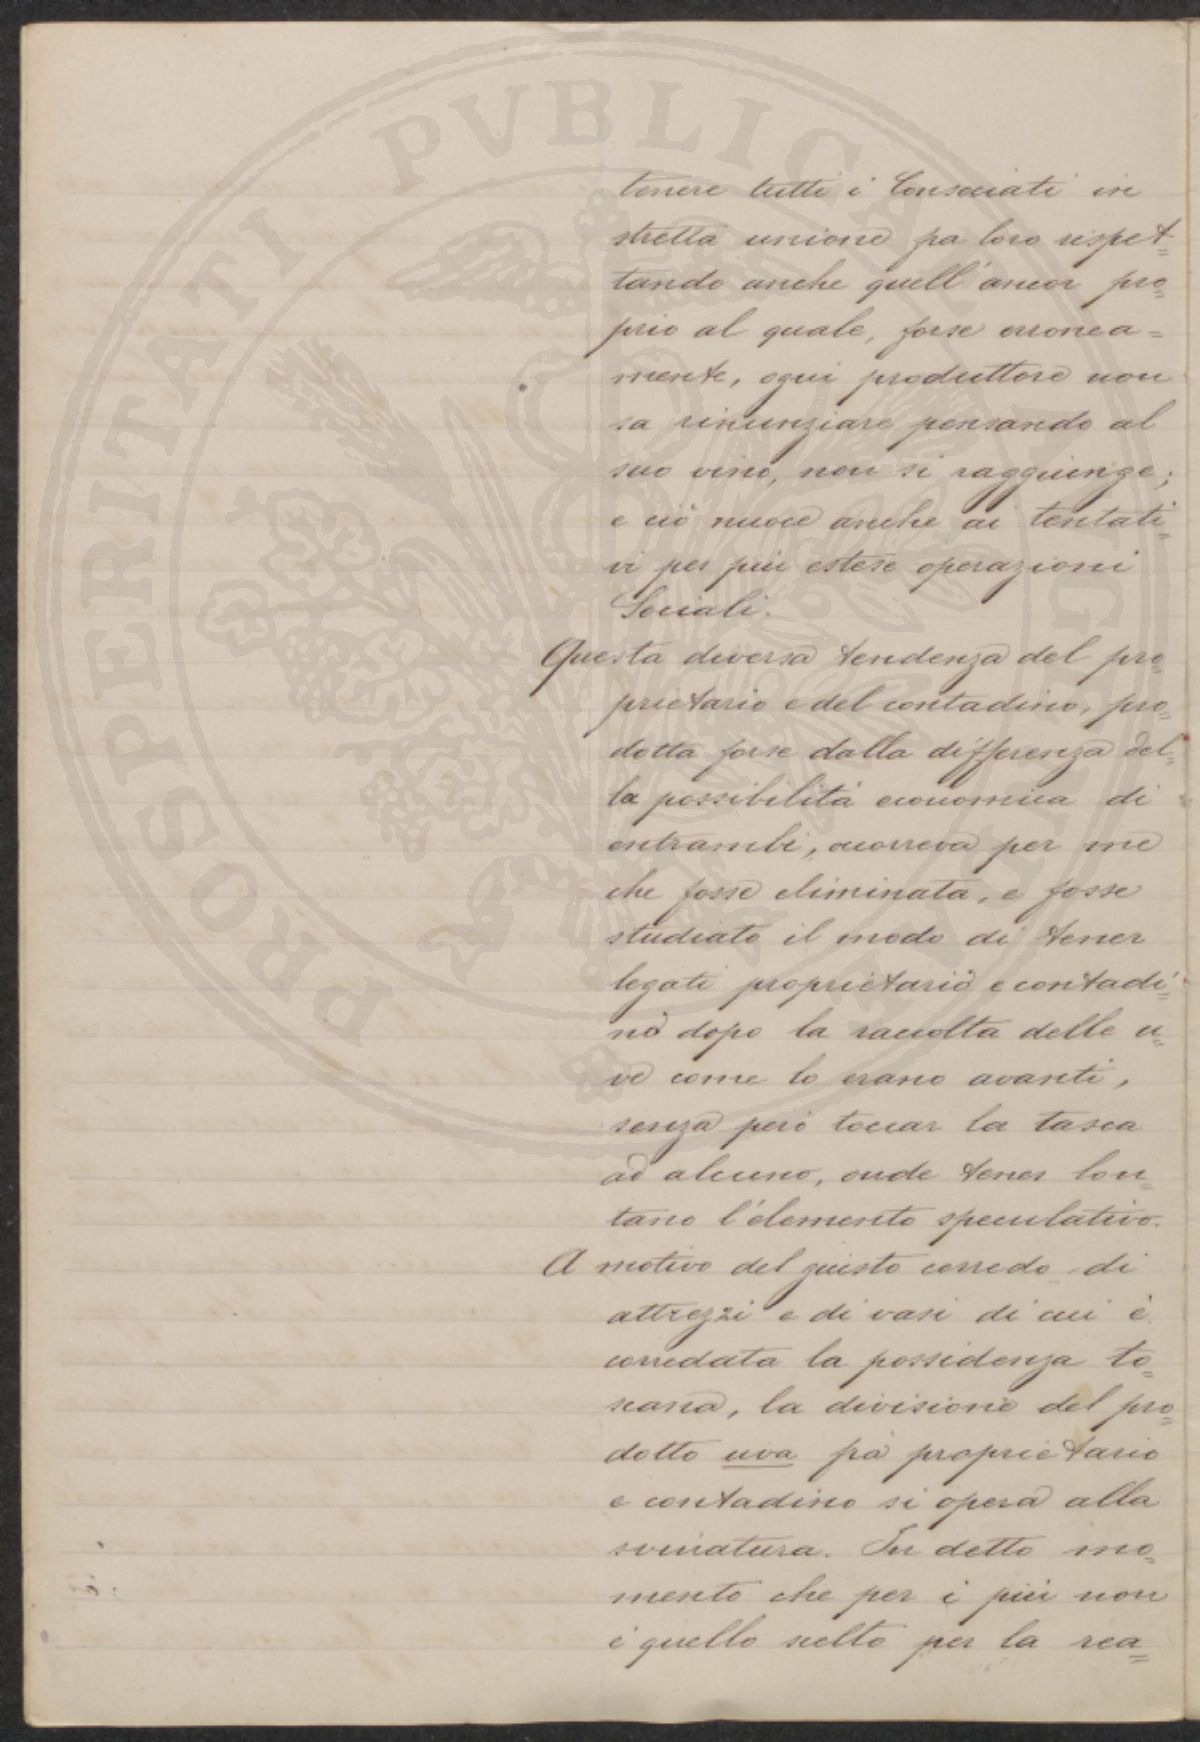 tenere tutti i Consociati in
stretta unione fra loro rispet=
tando anche quell'amor pro=
prio al quale, forse erronea=
mente, ogni produttore non
sa rinunziare pensando al
suo vino, non si raggiunge;
e ciò nuoce anche ai tentati=
vi per più estese operazioni
Sociali.
Questa diversa tendenza del pro=
prietario e del contadino, pro=
dotta forse dalla differenza del=
la possibilità economica di
entrambi, occorreva per me
che fosse eliminata, e fosse
studiato il modo di tener
legati proprietario e contadi=
no dopo la raccolta delle u=
ve come lo erano avanti,
senza però toccar la tasca
ad alcuno, onde tener lon=
tano l'elemento speculativo.
A motivo del giusto corredo di
attrezzi e di vasi di cui è
corredata la possidenza to=
scana, la divisione del pro=
dotto uva fra proprietario
e contadino si opera alla
svinatura. In detto mo=
mento che per i più non
è quello scelto per la rea=
PROSPERITATI PVBLICAE